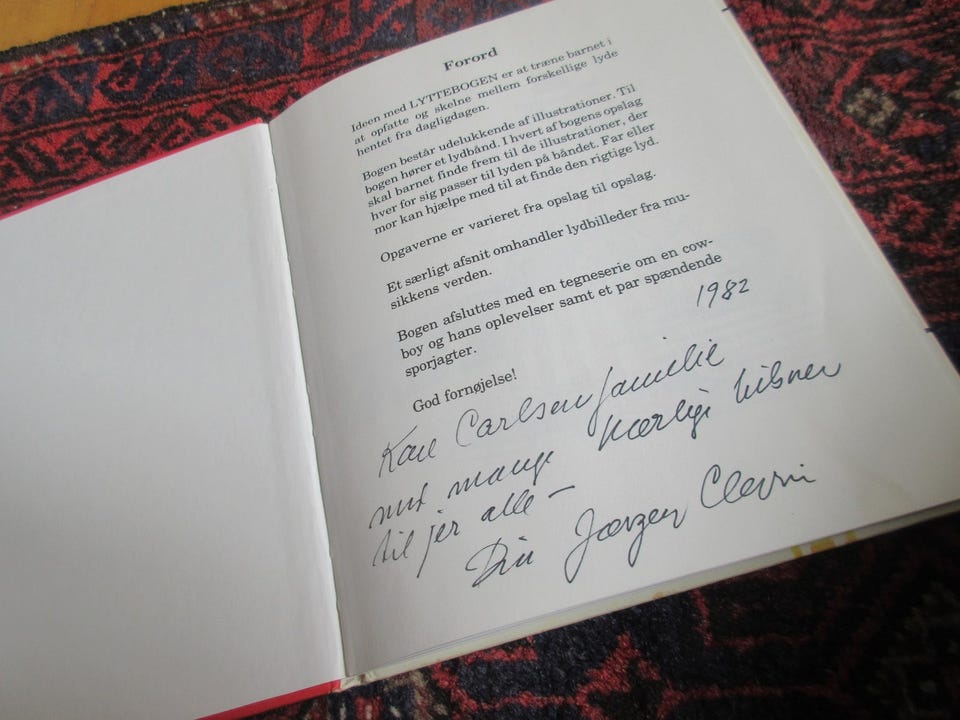 Forord
Ideen med LYTTEBOGEN er at træne barnet i
at opfatte og skelne mellem forskellige lyde
hentet fra dagligdagen.
Bogen består udelukkende af illustrationer. Til
bogen hører et lydbånd. I hvert af bogens opslag
skal barnet finde frem til de illustrationer, der
hver for sig passer til lyden på båndet. Far eller
mor kan hjælpe med til at finde den rigtige lyd.
Opgaverne er varieret fra opslag til opslag.
Et særligt afsnit omhandler lydbilleder fra mu-
sikkens verden.
Bogen afsluttes med en tegneserie om en cow-
boy og hans oplevelser samt et par spændende
sporjagter.
1982
God fornøjelse!
Carlsen familie
mange kærlige hilsner
til jer alle –
Din Jørgen Clevin